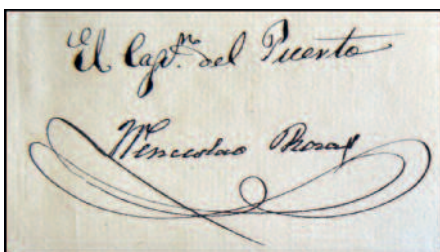 El Cap.ⁿ del Puerto
Wenceslao Rosas